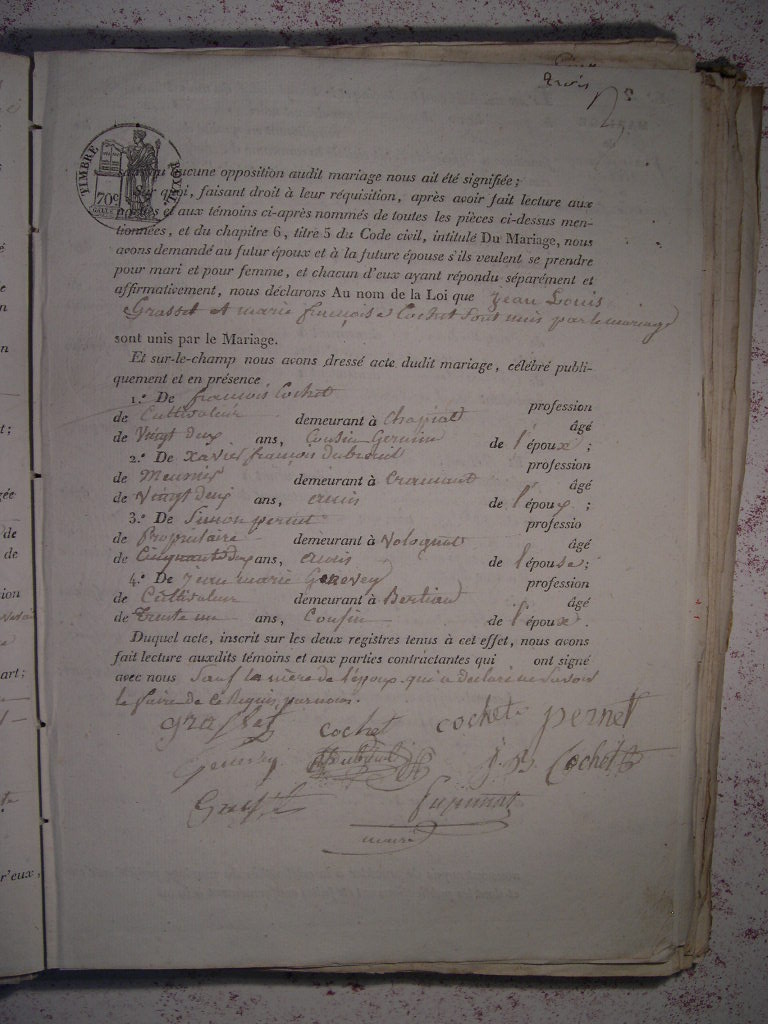 trois
TIMBRE ROYAL
70c
aucune opposition audit mariage nous ait été signifiée;
Sur quoi, faisant droit à leur réquisition, après avoir fait lecture aux
parties et aux témoins ci-après nommés de toutes les pièces ci-dessus men-
tionnées, et du chapitre 6, titre 5 du Code civil, intitulé Du Mariage, nous
avons demandé au futur époux et à la future épouse s'ils veulent se prendre
pour mari et pour femme, et chacun d'eux ayant répondu séparément et
affirmativement, nous déclarons Au nom de la Loi que Jean Louis
Grasset et marie françoise Cochet sont unis par le mariage
sont unis par le Mariage.
Et sur-le-champ nous avons dressé acte dudit mariage, célébré publi-
quement et en présence
1.° De françois Cochet profession
de Cultivateur demeurant à Chapiat âgé
de Vingt deux ans, Cousin Germain de l'époux;
2.° De xavier françois dubreuil profession
de Meunier demeurant à Cramant âgé
de Vingt deux ans, amis de l'époux;
3.° De Simon pernet professio
de Propriétaire demeurant à Volognat âgé
de Cinquante deux ans, amis de l'épouse;
4.° De jean marie Genevey profession
de Cultivateur demeurant à Bertian âgé
de trente un ans, Cousin de l'époux.
Duquel acte, inscrit sur les deux registres tenus à cet effet, nous avons
fait lecture auxdits témoins et aux parties contractantes qui ont signé
avec nous Sauf la mère de l'époux qui a déclaré ne savoir
le faire de ce Requis par nous.
grasset cochet cochet pernet
Genevey Dubreuil j. B. Cochet
Grasset
maire
r'eux,